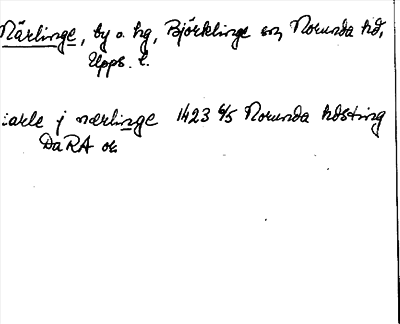 Närlinge, by o. hg, Björklinge sn, Norunda hd,
Upps. l.
iarle j nærlinge 1423 6/5 Norunda hdsting
DaRA or.